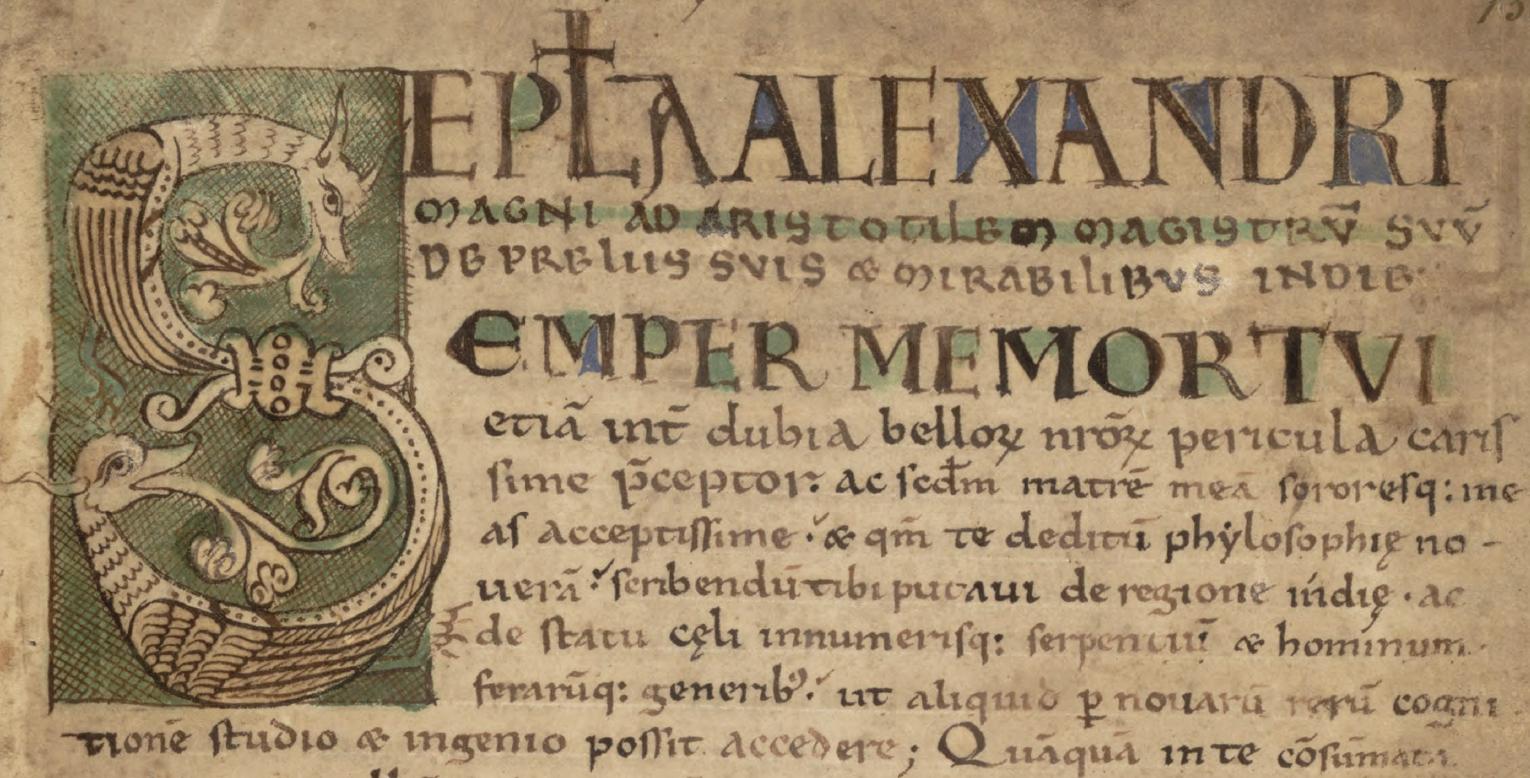 EPŁA ALEXANDRI
MAGNI AD ARISTOTILEM MAGISTRṼ SVṼ
DE PRELIIS SVIS & MIRABILIBVS INDIE
S EMPER MEMOR TVI
etiā int̄ dubia belloꝝ nr̄oꝝ pericula caris
sime p̄ceptor: ac scd̄m matrē meā sororesq: me
as acceptissime · & qm̄ te deditū phẏlosophię no-
uerā · scribendū tibi putaui de regione indię · ac
de statu cęli innumerisq: serpentiū & hominum
ferarūq: generibꝰ · ut aliquid ꝑ nouarū rerū cogni
tionē studio & ingenio possit accedere; Quāquā in te cōsūmata